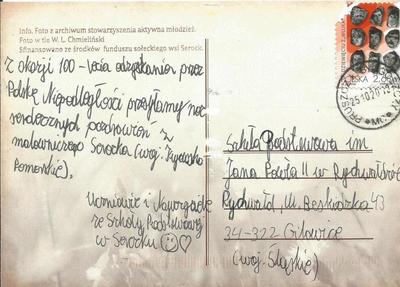 Info. Foto z archiwum stowarzyszenia aktywna młodzież.
Foto w tle W. L. Chmieliński
Sfinansowano ze środków funduszu sołeckiego wsi Serock.
Z okazji 100-lecia odzyskania przez
Polskę Niepodległości przesyłamy moc
serdecznych pozdrowień z
malowniczego Serocka (woj. Kujawsko-
Pomorskie).
Uczniowie i Nauczyciele
ze Szkoły Podstawowej
w Serocku
POLSKA 2,60
25.10.20
Szkoła Podstawowa im.
Jana Pawła II w Rychwałdzie
Rychwałd, ul. Beskidzka 43
34-322 Gilowice
(woj. Śląskie)